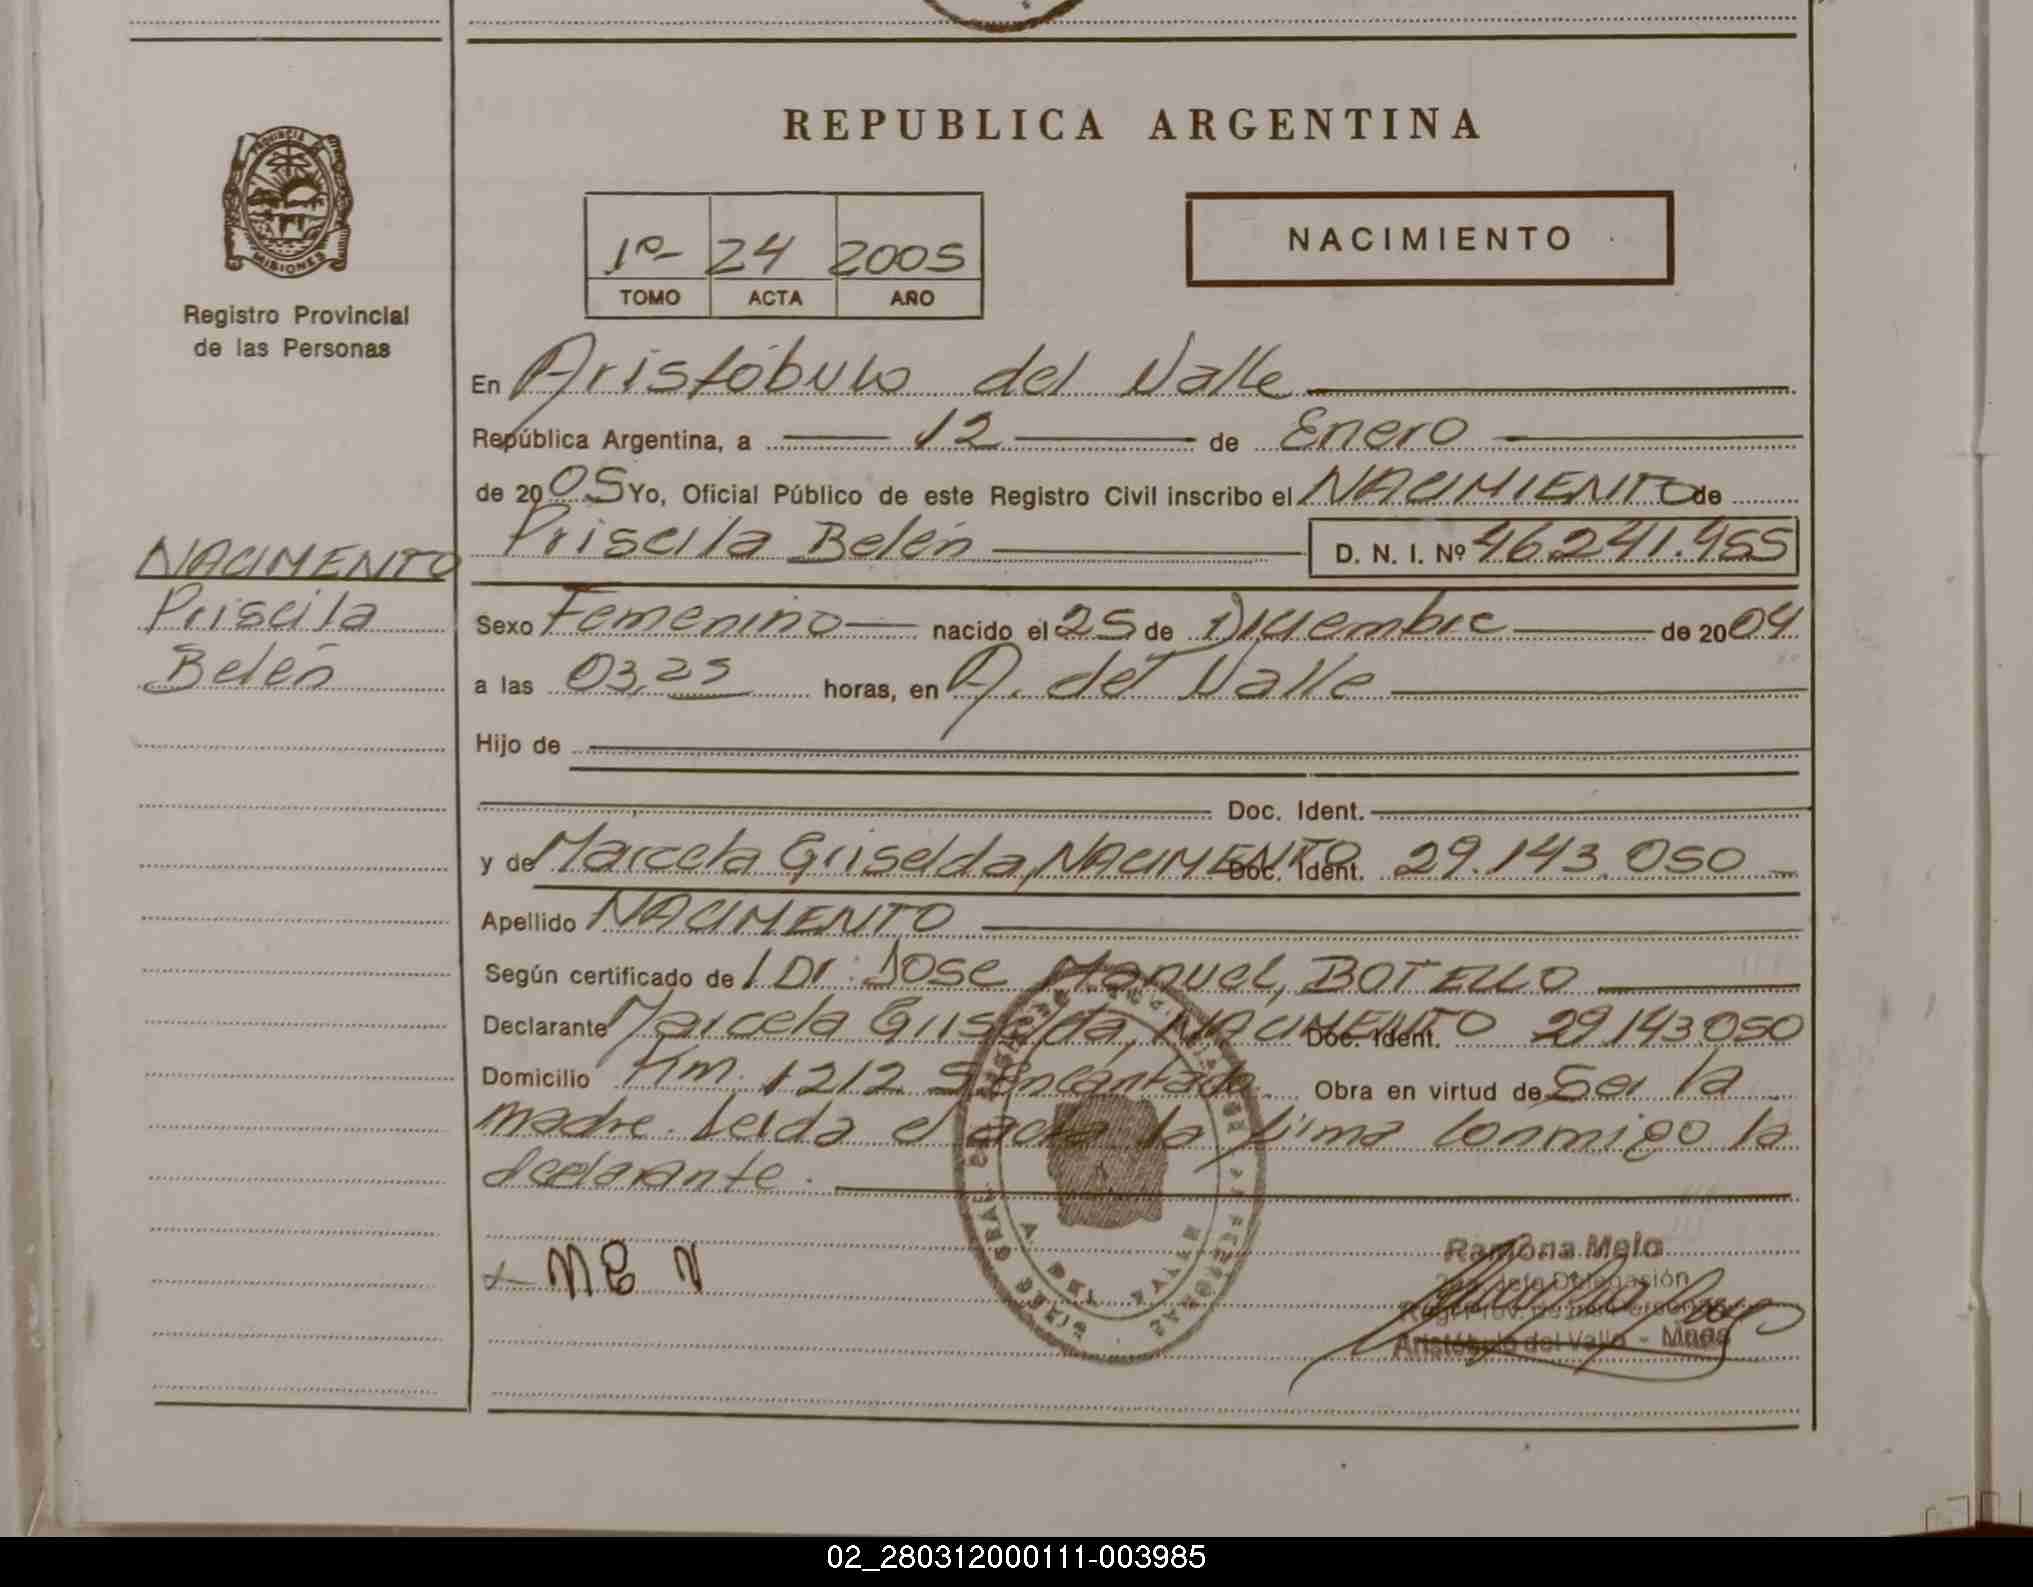 REPUBLICA ARGENTINA
PROVINCIA
MISIONES
Registro Provincial
de las Personas
1º 24 2005
TOMO ACTA AÑO
NACIMIENTO
En Aristóbulo del Valle
República Argentina, a 12 de Enero
de 2005 Yo, Oficial Público de este Registro Civil inscribo el NACIMIENTO de
Priscila Belén D. N. I. Nº 46.241.955
NACIMENTO
Priscila
Belén
Sexo Femenino nacido el 25 de Diciembre de 2004
a las 03,25 horas, en A. del Valle
Hijo de
Doc. Ident.
y de Marcela Griselda, NACIMENTO Doc. Ident. 29.143.050
Apellido NACIMENTO
Según certificado de l Dr: Jose Manuel, BOTELLO
Declarante Marcela Griselda, NACIMENTO Doc. Ident. 29.143.050
Domicilio Km. 1212 S. Encantado. Obra en virtud de Ser la
madre. Leida el acta la firma conmigo la
declarante.
M G N
Ramona Melo
Jefa Delegación
Reg. Prov. de las Personas
Aristóbulo del Valle - Mnes
02_280312000111-003985